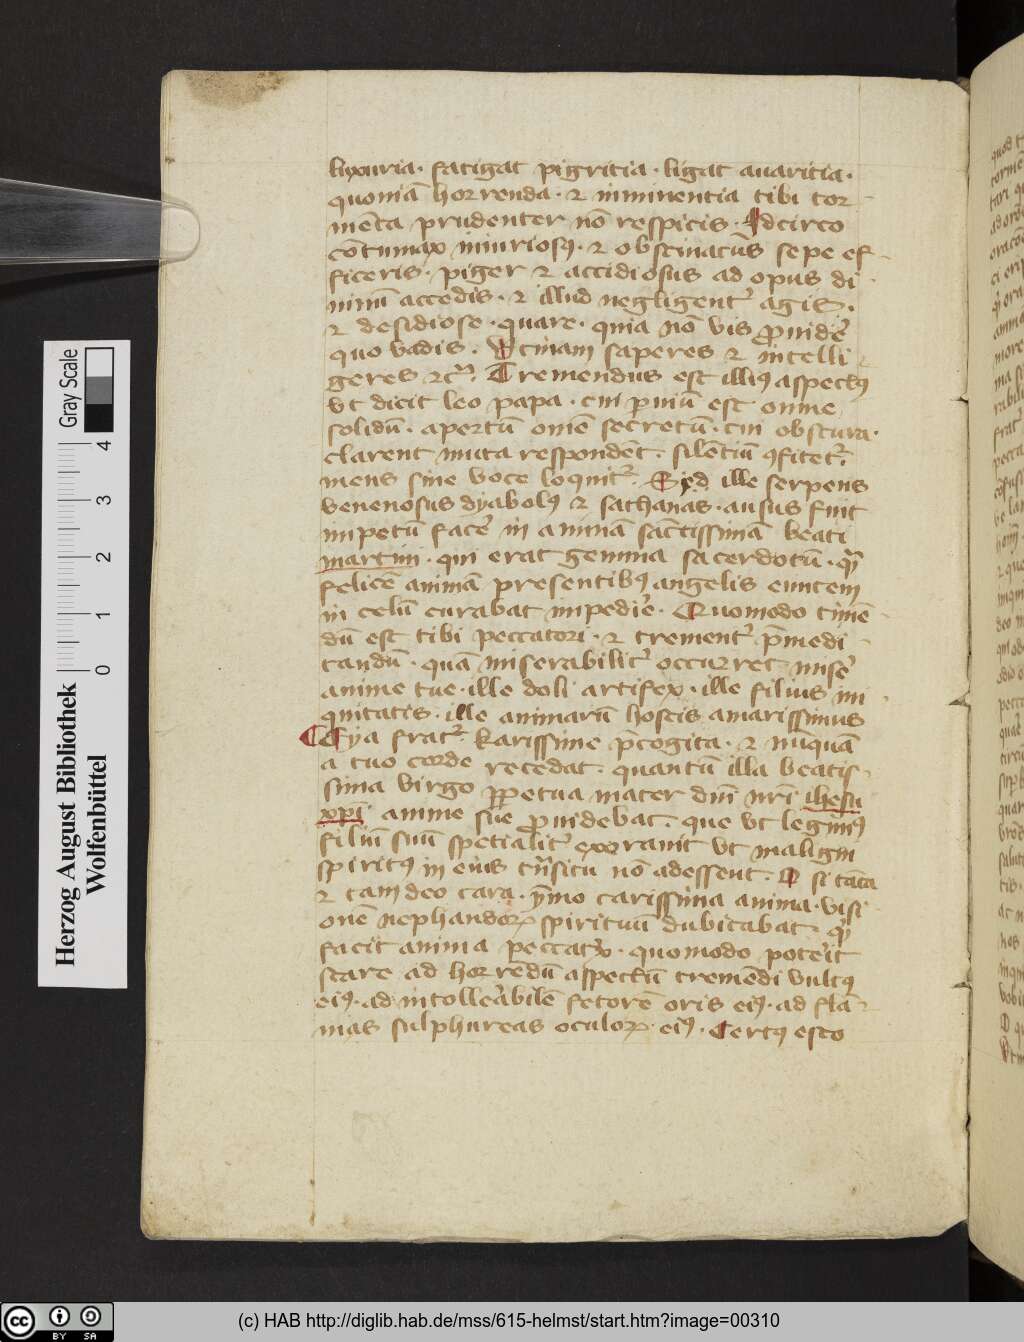 luxuria · fatigat pigritia · ligat auaritia ·
quoniā horrenda · et inminentia tibi tor
menta prudenter nō respicis · Idcirco
cōtumax iniuriosꝰ · et obstinatus sepe ef
ficeris · piger et accidiosus ad opus di
uinū accedis · et illud negligent᷑ agis ·
et desidiose · quare · quia nō vis ꝓuidē
quo vadis · Utinam saperes et intelli
geres etc᷑ · Tremendus est illiꝰ aspectꝰ
vt dicit leo papa · cui ꝑuiū est omne
solidū · apertū om̄e secretū · cui obscura ·
clarent muta respondēt · silētiū ꝯfitet᷑ ·
mens sine voce loquit᷑ · Sed ille serpens
venenosus dyabolꝰ et sathanas · ausus fuit
impetū facē in animā sāctissimā beati
martini · qui erat gemma sacerdotū · 
felicē animā presentibꝰ angelis euntem
in celū curabat impedīe · Quomodo timē
dū est tibi peccatori · et trement᷑ p̄medi
tandū · quā miserabilit᷑ occurret misē
anime tue · ille doli artifex · ille filius ini
quitatis · ille animarū hostis amarissimus
Eya frat᷑ karissime p̄cogita · et nūquā
a tuo corde recedat · quantū illa beatis
sima virgo ꝑpetua mater dn̄i nr̄i ihesu
xpī anime sue ꝓuidebat · que vt legimꝰ
filiū suū spetialit᷑ exorauit vt maligni
spiritꝰ in eius tn̄situ nō adessent · O si tāta
et tam deo cara · ȳmo carissima anima · visi
onē nephandoꝝ spirituū dubitabat · 
faciet anima peccatꝝ · quomodo poterit
stare ad horredū aspectū tremēdi vultꝰ
eiꝰ · ad intollerabilē fetorē oris eiꝰ · ad flā
mas sulphureas oculoꝝ eiꝰ · Certꝰ esto
Gray Scale
0 1 2 3 4
Herzog August Bibliothek
Wolfenbüttel
cc BY SA
(c) HAB http://diglib.hab.de/mss/615-helmst/start.htm?image=00310